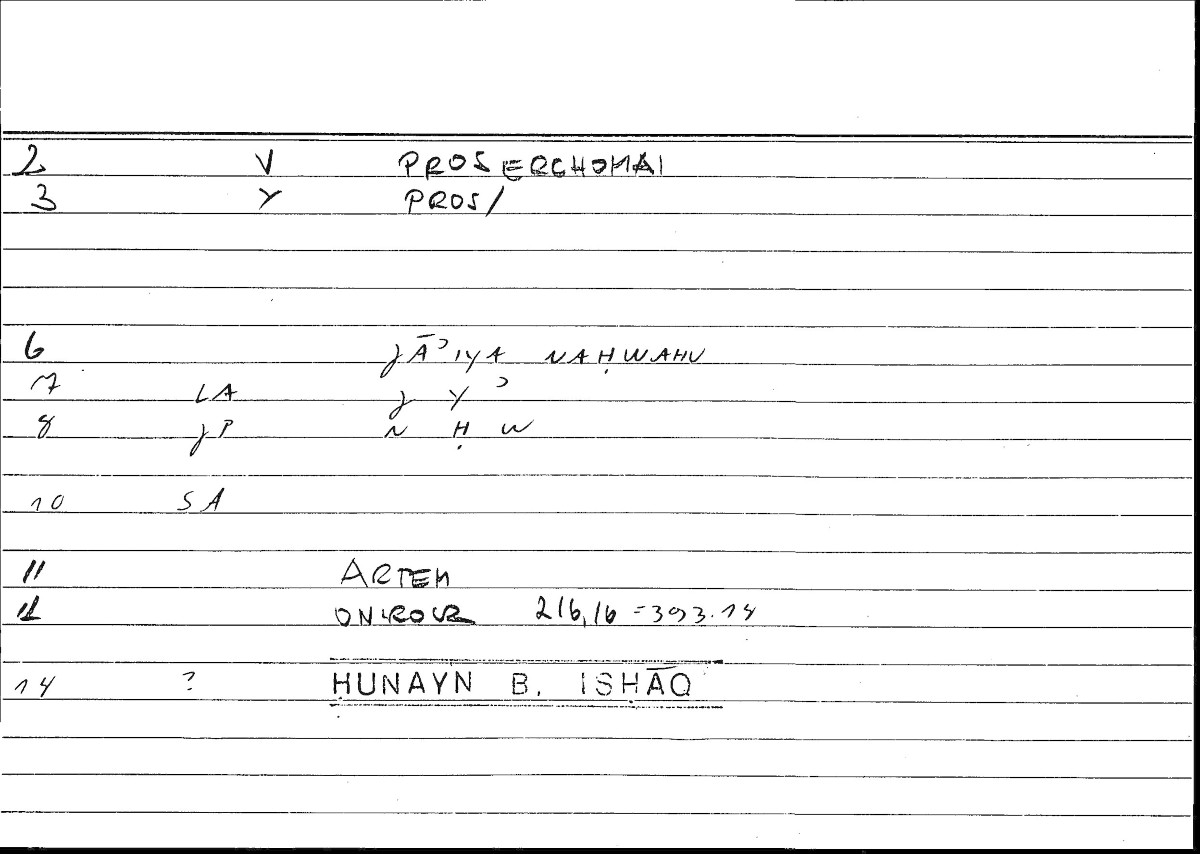 2 V PROSERCHOMAI
3 Y PROS/
6 JĀʾIYA NAḤWAHU
7 LA J Y ʾ
8 JP N Ḥ W
10 SA
11 ARTEM
12 ONIROCR 216,16 = 393.14
14 ? ḤUNAYN B. ISḤĀQ